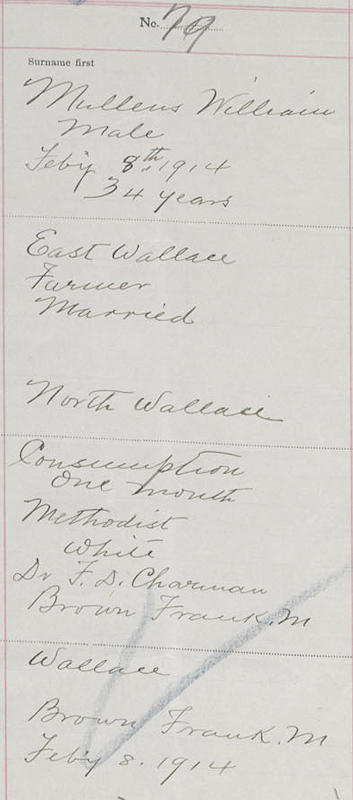 No. 79
Surname first
Mullens William
Male
Feb'y 8th 1914
34 years
East Wallace
Farmer
Married
North Wallace
Consumption
One month
Methodist
White
Dr F. D. Charman
Brown Frank. M
Wallace
Brown Frank. M
Feb'y 8. 1914